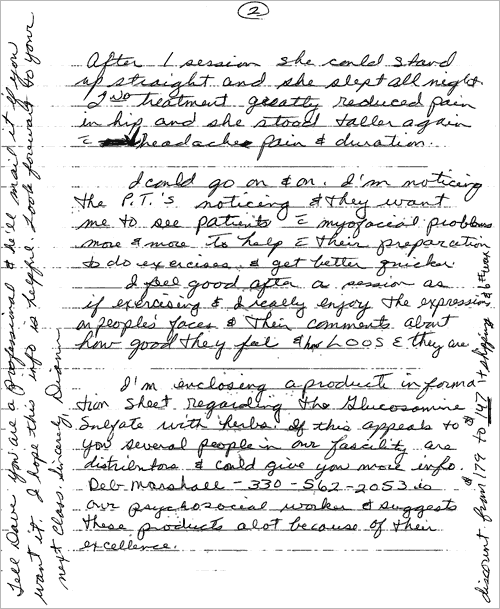 2
After 1 session she could stand
up straight and she slept all night
2nd treatment greatly reduced pain
in hip and she stood taller again
c̄ headache pain & duration.
I could go on & on. I'm noticing
the P.T.'s noticing & they want
me to see patients c̄ myofacial problems
more & more to help c̄ their preparation
to do exercises & get better quicker.
I feel good after a session as
if exercising & I really enjoy the expression
on people's faces & their comments about
how good they feel & how LOOSE they are
I'm enclosing a product informa
tion sheet regarding the Glucosamine
Sulfate with herbs. If this appeals to
you several people in our fascility are
distributors & could give you more info.
Deb Marshall - 330-562-2053 is
our psychosocial worker & suggests
these products alot because of their
excellence.
Tell Dave you are a professional & he'll mail it if you
want it. I hope this info is helpful. Look forward to your
next class. Sincerely, Diann
discount from $179 to $147 + shipping